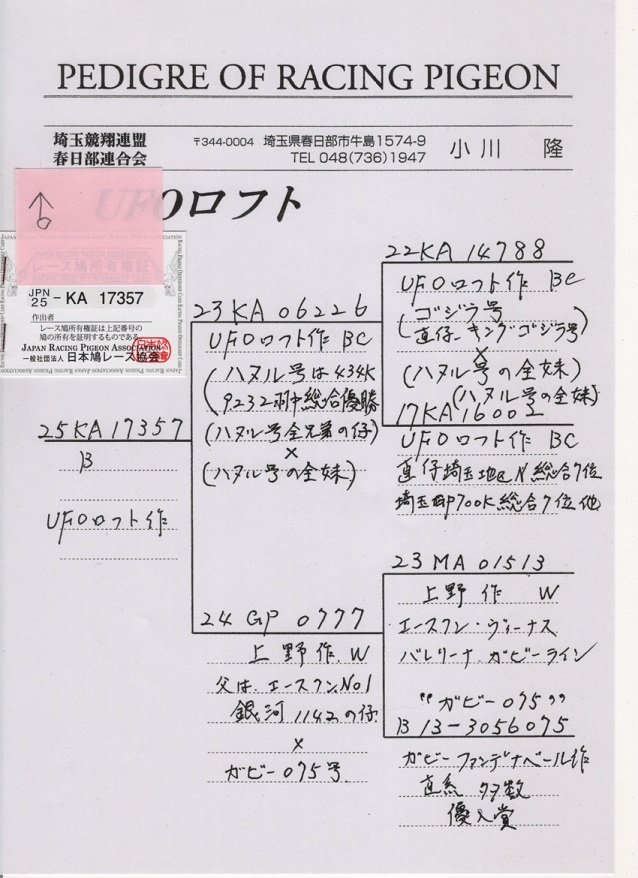 PEDIGRE OF RACING PIGEON
埼玉競翔連盟
春日部連合会
〒344-0004 埼玉県春日部市牛島1574-9
TEL 048(736)1947
小川 隆
UFOロフト
レース鳩所有権証
JPN 25 - KA 17357
作出者
レース鳩所有権証は上記番号の
鳩の所有を証明するものである
JAPAN RACING PIGEON ASSOCIATION
一般社団法人 日本鳩レース協会
25KA17357
B
UFOロフト作
23KA 06226
UFOロフト作 BC
(ハヌル号は434K
9232羽中総合優勝
(ハヌル号全兄弟の仔)
×
(ハヌル号の全妹)
24 GP 0777
上野作.W
父は.エースワン.No1
銀河1142の仔
×
ガビー075号
22KA 14788
UFOロフト作 BC
(ゴジラ号
直仔.キングゴジラ号)
×
(ハヌル号の全妹)
(ハヌル号の全妹)
17KA16002
UFOロフト作 BC
直仔埼玉地区N総合7位
総合7位他
23 MA 01513
上野作 W
エースワン・ヴィーナス
バレリーナ.ガビーライン
"ガビー075"
B 13-3056075
ガビーファンデナベール作
直系 多数
優入賞